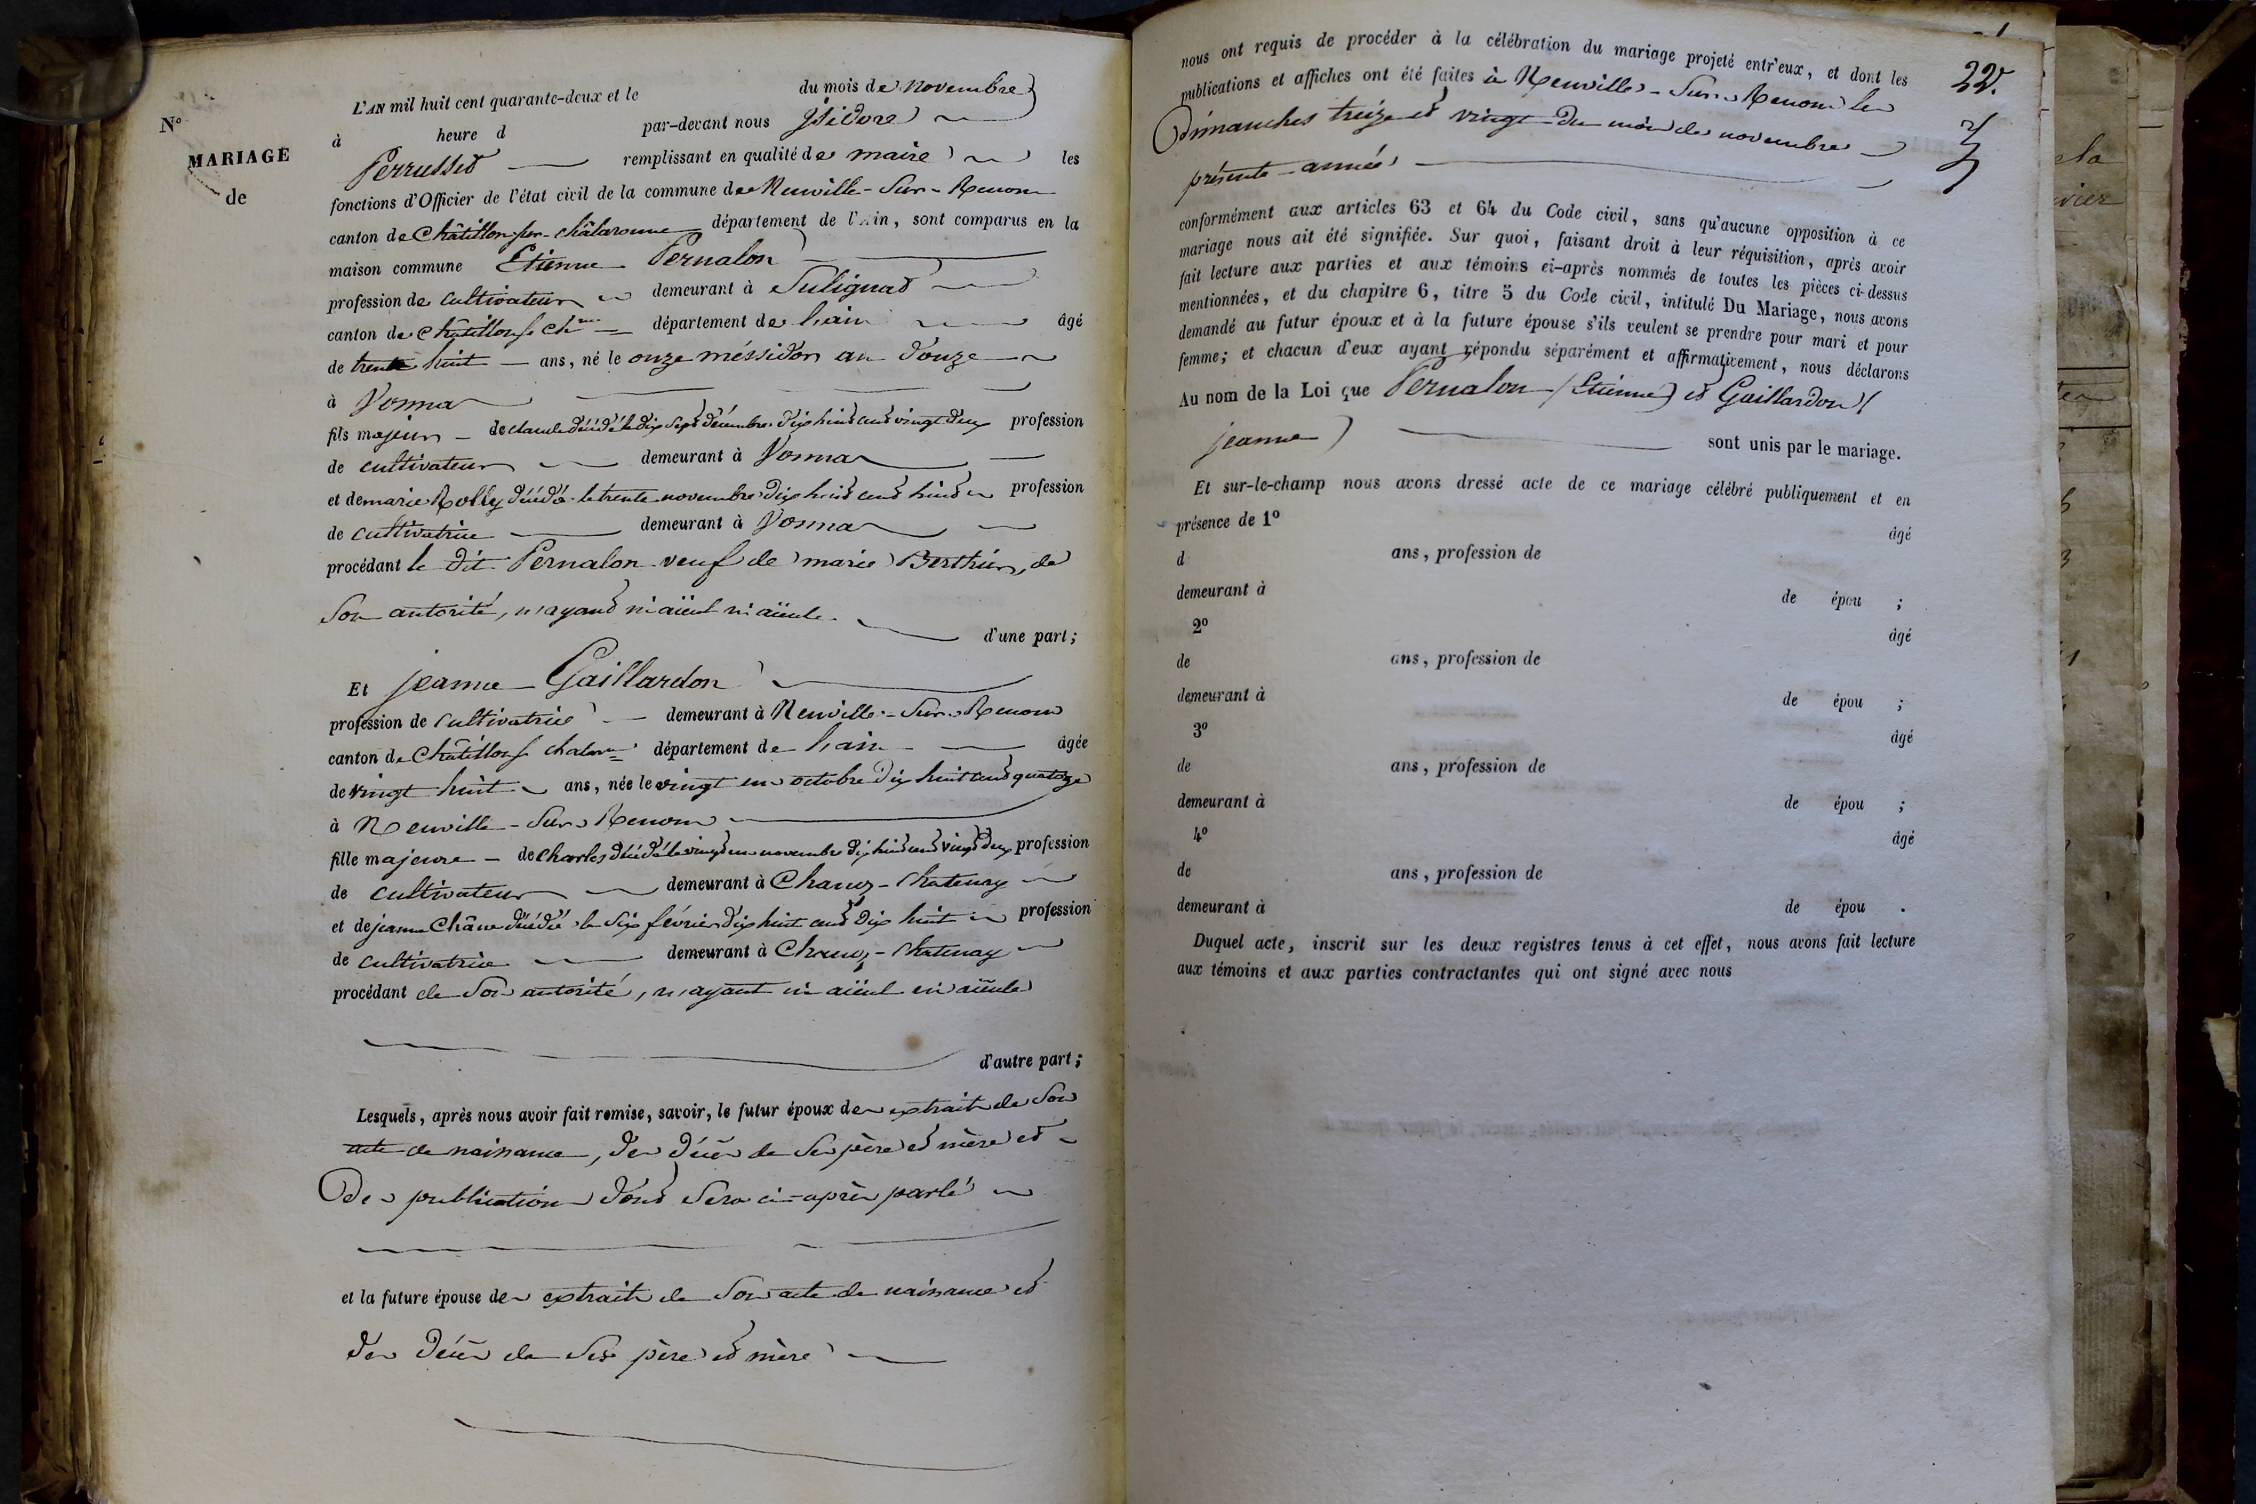 L'AN mil huit cent quarante-deux et le du mois de novembre
N°
à heure d par-devant nous Isidore
MARIAGE
Perrussed remplissant en qualité de maire les
de
fonctions d'Officier de l'état civil de la commune de Neuville-Sur-Renom
canton de Châtillon-sur-châlaronne département de l'Ain, sont comparus en la
maison commune Etienne Pernalon
profession de cultivateur demeurant à Sulignat
canton de Châtillon s. Chne département de l'ain âgé
de trente huit ans, né le onze méssidor an douze
à Vonnas
fils majeur de claude décédé le dix sept décembre dix huit cent vingt deux profession
de cultivateur demeurant à Vonnas
et de marie Rolly décédé le trente novembre dix huit cent huit profession
de cultivatrice demeurant à Vonnas
procédant le dit Pernalon veuf de marie Berthier, de
Son autorité, n'ayant ni aïeul ni aïeule.
d'une part;
Et jeanne Gaillardon
profession de cultivatrice demeurant à Neuville-Sur-Renom
canton de Châtillon s. chalarne département de l'ain âgée
de vingt huit ans, née le vingt un octobre dix huit cent quatorze
à Neuville-Sur-Renom
fille majeure de Charles décédé le vingt un novembre dix huit cent vingt deux profession
de cultivateur demeurant à Chanoz-Chatenay
et de jeanne Châne décédé le six février dix huit cent dix huit profession
de cultivatrice demeurant à Chanoz-Chatenay
procédant de Son autorité, n'ayant ni aïeul ni aïeule
d'autre part;
Lesquels, après nous avoir fait remise, savoir, le futur époux des extraits de Son
acte de naissance, des décès de Ses père et mère et
des publications dont Sera ci-après parlé
et la future épouse des extraits de Son acte de naissance et
des décès de Ses père et mère
nous ont requis de procéder à la célébration du mariage projeté entr'eux, et dont les
22.
publications et affiches ont été faites à Neuville-Sur-Renom les
Dimanches treize et vingt du mois de novembre
présente année
conformément aux articles 63 et 64 du Code civil, sans qu'aucune opposition à ce
mariage nous ait été signifiée. Sur quoi, faisant droit à leur réquisition, après avoir
fait lecture aux parties et aux témoins ci-après nommés de toutes les pièces ci-dessus
mentionnées, et du chapitre 6, titre 5 du Code civil, intitulé Du Mariage, nous avons
demandé au futur époux et à la future épouse s'ils veulent se prendre pour mari et pour
femme; et chacun d'eux ayant répondu séparément et affirmativement, nous déclarons
Au nom de la Loi que Pernalon (Etienne) et Gaillardon (
jeanne) sont unis par le mariage.
Et sur-le-champ nous avons dressé acte de ce mariage célébré publiquement et en
présence de 1° âgé
d ans, profession de
demeurant à de épou ;
2° âgé
de ans, profession de
demeurant à de épou ;
3° âgé
de ans, profession de
demeurant à de épou ;
4° âgé
de ans, profession de
demeurant à de épou .
Duquel acte, inscrit sur les deux registres tenus à cet effet, nous avons fait lecture
aux témoins et aux parties contractantes qui ont signé avec nous